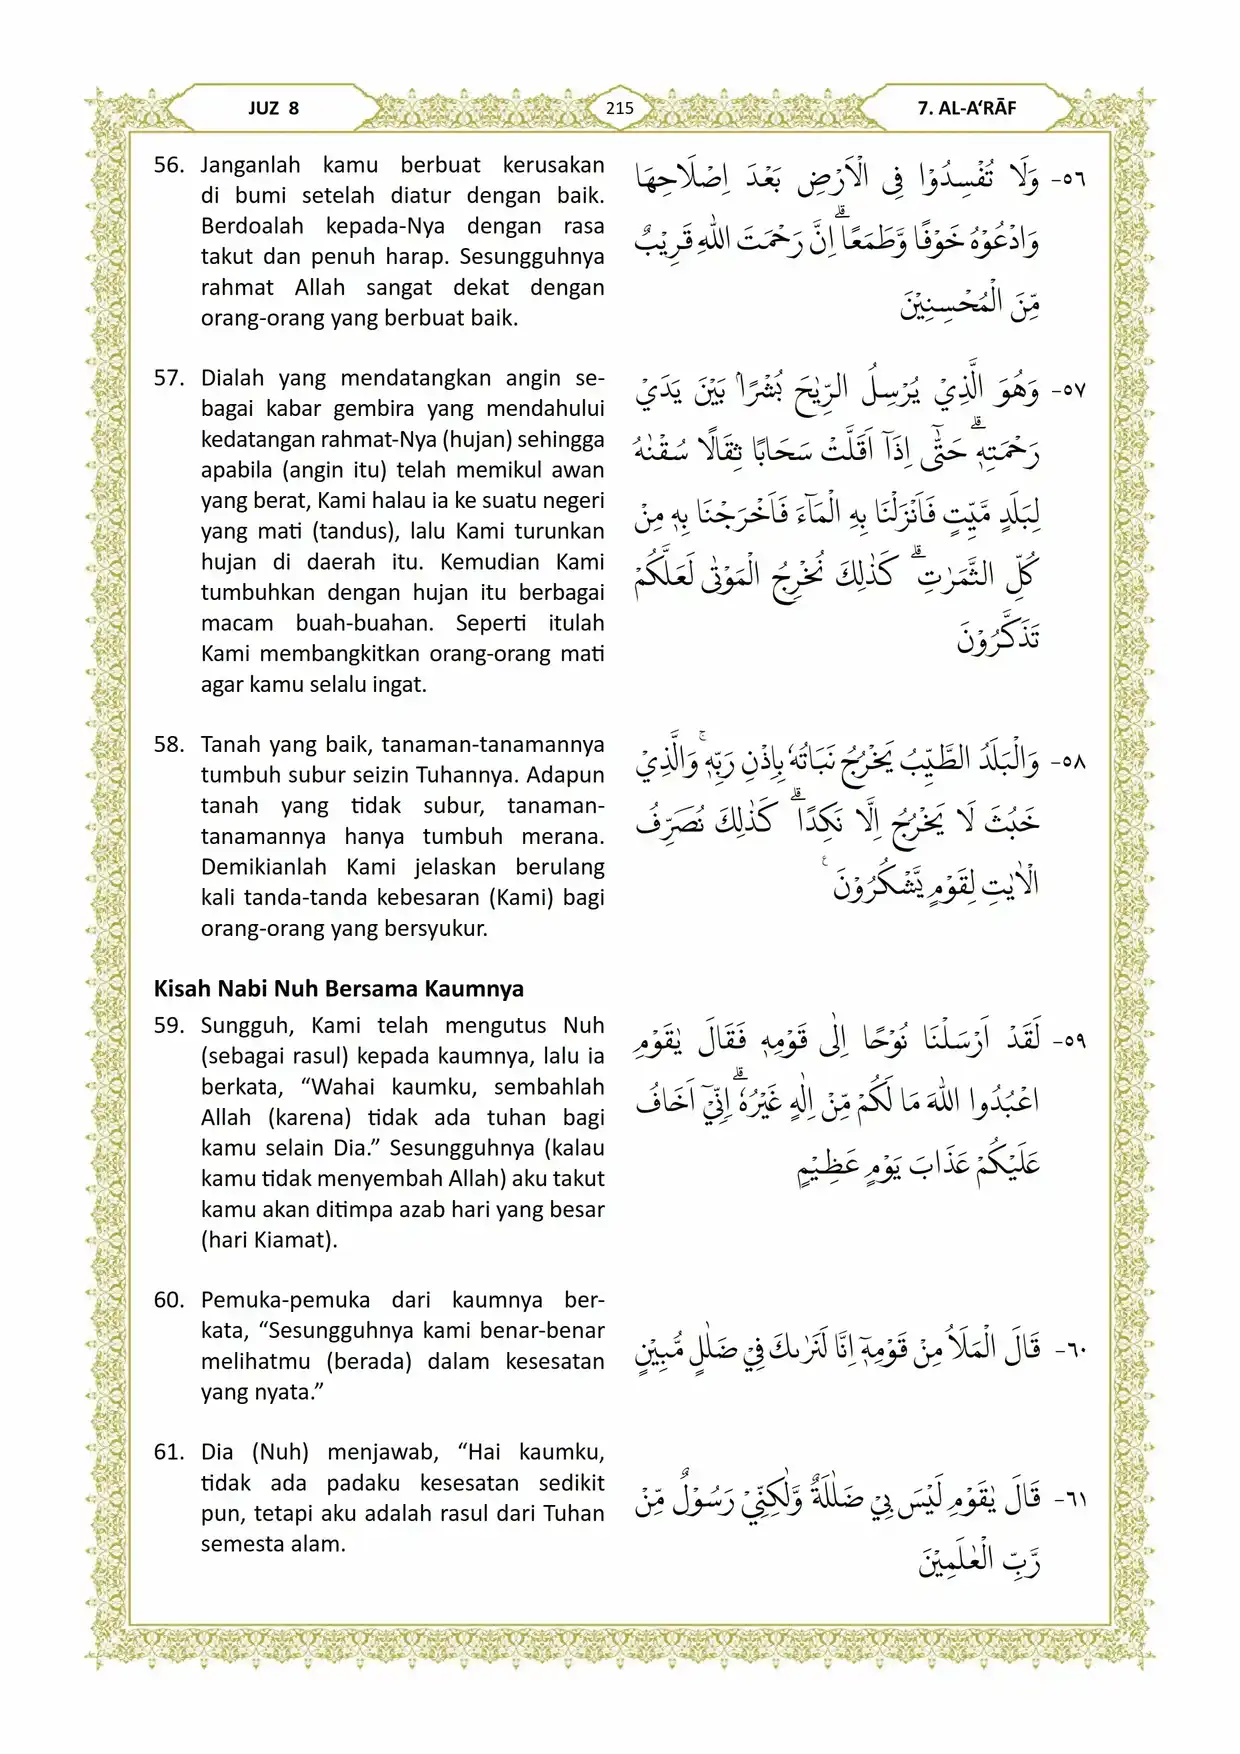 JUZ 8
215
7. AL-A‘RĀF
56. Janganlah kamu berbuat kerusakan
di bumi setelah diatur dengan baik.
Berdoalah kepada-Nya dengan rasa
takut dan penuh harap. Sesungguhnya
rahmat Allah sangat dekat dengan
orang-orang yang berbuat baik.
٥٦- وَلَا تُفْسِدُوْا فِى الْاَرْضِ بَعْدَ اِصْلَاحِهَا
وَادْعُوْهُ خَوْفًا وَّطَمَعًاۗ اِنَّ رَحْمَتَ اللّٰهِ قَرِيْبٌ
مِّنَ الْمُحْسِنِيْنَ
57. Dialah yang mendatangkan angin se-
bagai kabar gembira yang mendahului
kedatangan rahmat-Nya (hujan) sehingga
apabila (angin itu) telah memikul awan
yang berat, Kami halau ia ke suatu negeri
yang mati (tandus), lalu Kami turunkan
hujan di daerah itu. Kemudian Kami
tumbuhkan dengan hujan itu berbagai
macam buah-buahan. Seperti itulah
Kami membangkitkan orang-orang mati
agar kamu selalu ingat.
٥٧- وَهُوَ الَّذِيْ يُرْسِلُ الرِّيٰحَ بُشْرًاۢ بَيْنَ يَدَيْ
رَحْمَتِهٖۗ حَتّٰٓى اِذَآ اَقَلَّتْ سَحَابًا ثِقَالًا سُقْنٰهُ
لِبَلَدٍ مَّيِّتٍ فَاَنْزَلْنَا بِهِ الْمَاۤءَ فَاَخْرَجْنَا بِهٖ مِنْ
كُلِّ الثَّمَرٰتِۗ كَذٰلِكَ نُخْرِجُ الْمَوْتٰى لَعَلَّكُمْ
تَذَكَّرُوْنَ
58. Tanah yang baik, tanaman-tanamannya
tumbuh subur seizin Tuhannya. Adapun
tanah yang tidak subur, tanaman-
tanamannya hanya tumbuh merana.
Demikianlah Kami jelaskan berulang
kali tanda-tanda kebesaran (Kami) bagi
orang-orang yang bersyukur.
٥٨- وَالْبَلَدُ الطَّيِّبُ يَخْرُجُ نَبَاتُهٗ بِاِذْنِ رَبِّهٖۚ وَالَّذِيْ
خَبُثَ لَا يَخْرُجُ اِلَّا نَكِدًاۗ كَذٰلِكَ نُصَرِّفُ
الْاٰيٰتِ لِقَوْمٍ يَّشْكُرُوْنَ ࣖ
Kisah Nabi Nuh Bersama Kaumnya
59. Sungguh, Kami telah mengutus Nuh
(sebagai rasul) kepada kaumnya, lalu ia
berkata, “Wahai kaumku, sembahlah
Allah (karena) tidak ada tuhan bagi
kamu selain Dia.” Sesungguhnya (kalau
kamu tidak menyembah Allah) aku takut
kamu akan ditimpa azab hari yang besar
(hari Kiamat).
٥٩- لَقَدْ اَرْسَلْنَا نُوْحًا اِلٰى قَوْمِهٖ فَقَالَ يٰقَوْمِ
اعْبُدُوا اللّٰهَ مَا لَكُمْ مِّنْ اِلٰهٍ غَيْرُهٗۗ اِنِّيْٓ اَخَافُ
عَلَيْكُمْ عَذَابَ يَوْمٍ عَظِيْمٍ
60. Pemuka-pemuka dari kaumnya ber-
kata, “Sesungguhnya kami benar-benar
melihatmu (berada) dalam kesesatan
yang nyata.”
٦٠- قَالَ الْمَلَاُ مِنْ قَوْمِهٖٓ اِنَّا لَنَرٰىكَ فِيْ ضَلٰلٍ مُّبِيْنٍ
61. Dia (Nuh) menjawab, “Hai kaumku,
tidak ada padaku kesesatan sedikit
pun, tetapi aku adalah rasul dari Tuhan
semesta alam.
٦١- قَالَ يٰقَوْمِ لَيْسَ بِيْ ضَلٰلَةٌ وَّلٰكِنِّيْ رَسُوْلٌ مِّنْ
رَّبِّ الْعٰلَمِيْنَ